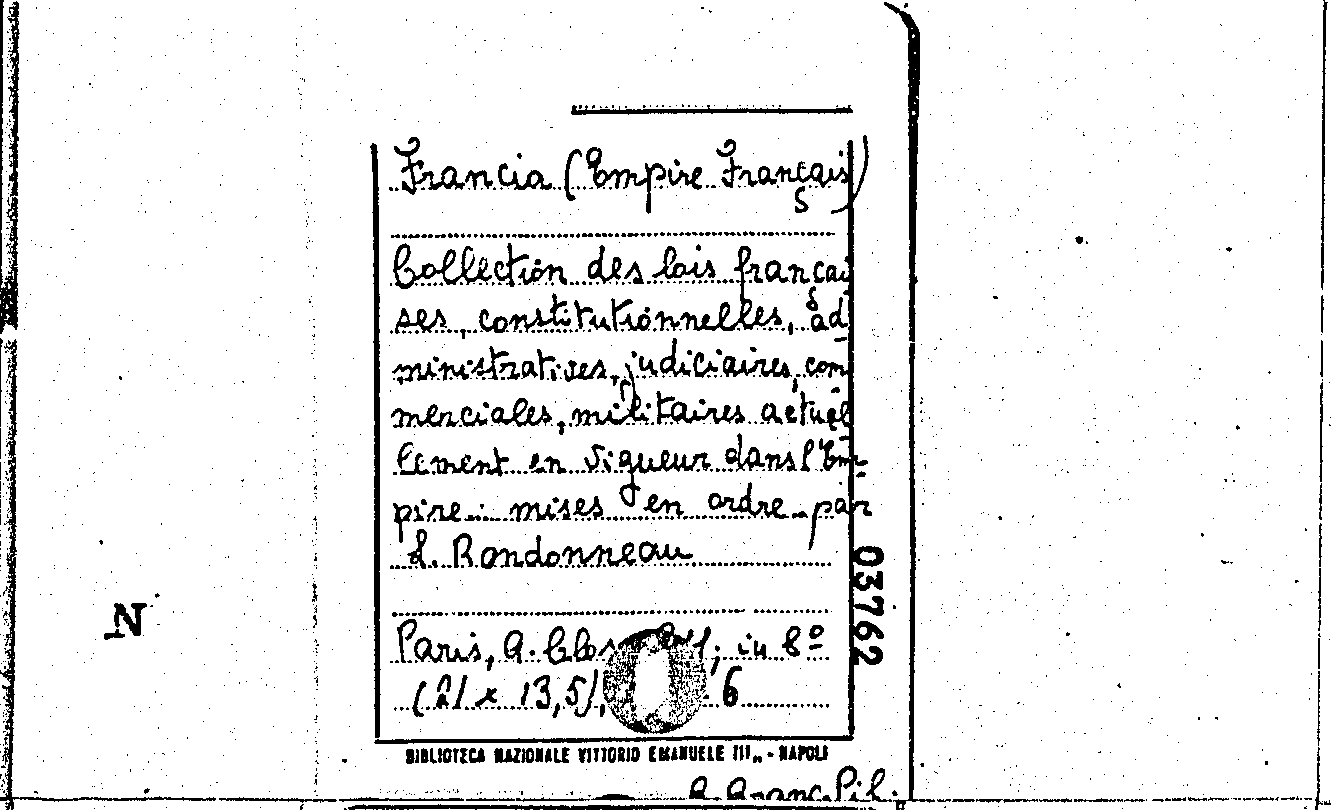 Francia (Empire Français)
Collection des lois françai
ses, constitutionnelles, ad
ministratives, judiciaires, com
merciales, militaires actuel
lement en vigueur dans l'Em-
pire... mises en ordre par
L. Rondonneau
Paris, A. in 8º
(21 x 13,5), 6
03762
N
BIBLIOTECA NAZIONALE VITTORIO EMANUELE III„ - NAPOLI